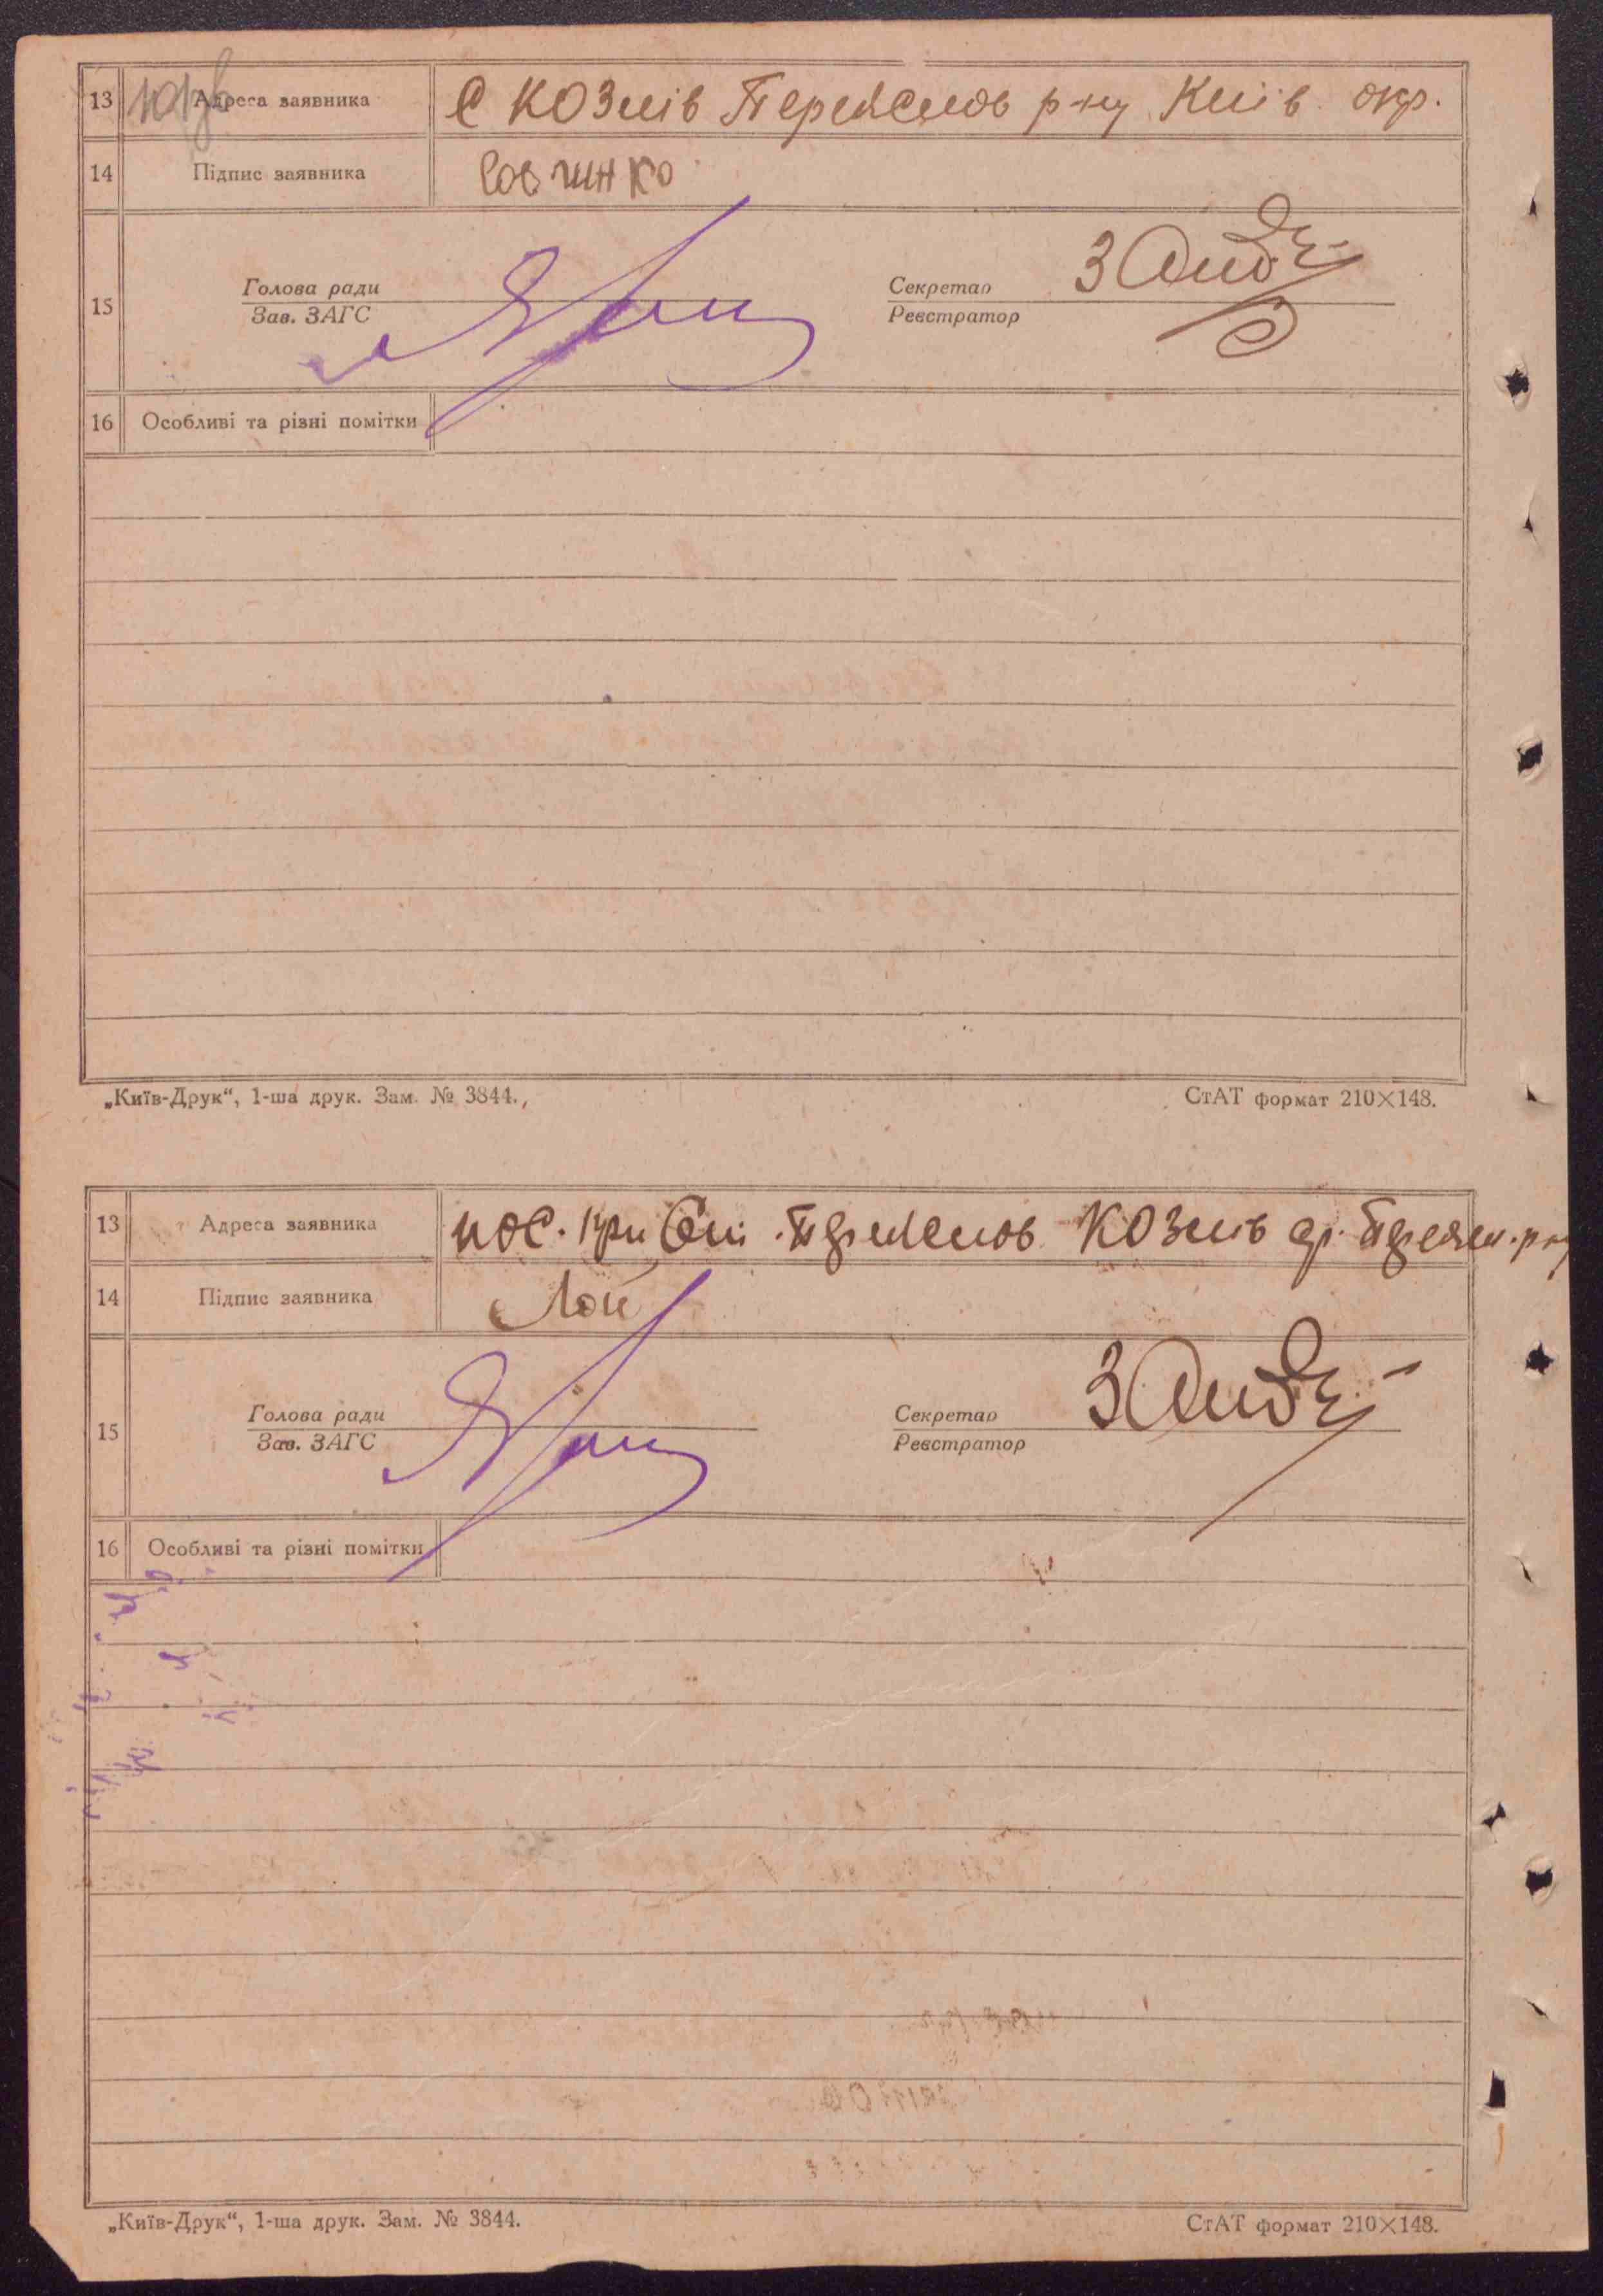 13 Адреса заявника С Козлів Переяслов р-ну Київ окр.
14 Підпис заявника Совчинко
15 Голова ради
Зав. ЗАГС
Секретар
Реєстратор
16 Особливі та різні помітки
„Київ-Друк“, 1-ша друк. Зам. № 3844. СтАТ формат 210×148.
13 Адреса заявника пос. Козлів Переясл. р-ну
14 Підпис заявника Лой
15 Голова ради
Зав. ЗАГС
Секретар
Реєстратор
16 Особливі та різні помітки
„Київ-Друк“, 1-ша друк. Зам. № 3844. СтАТ формат 210×148.